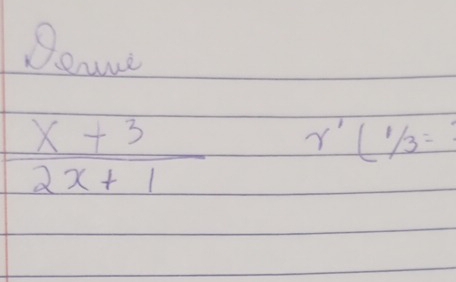 Derive
x + 3
2x + 1
r' ( 1/3 =